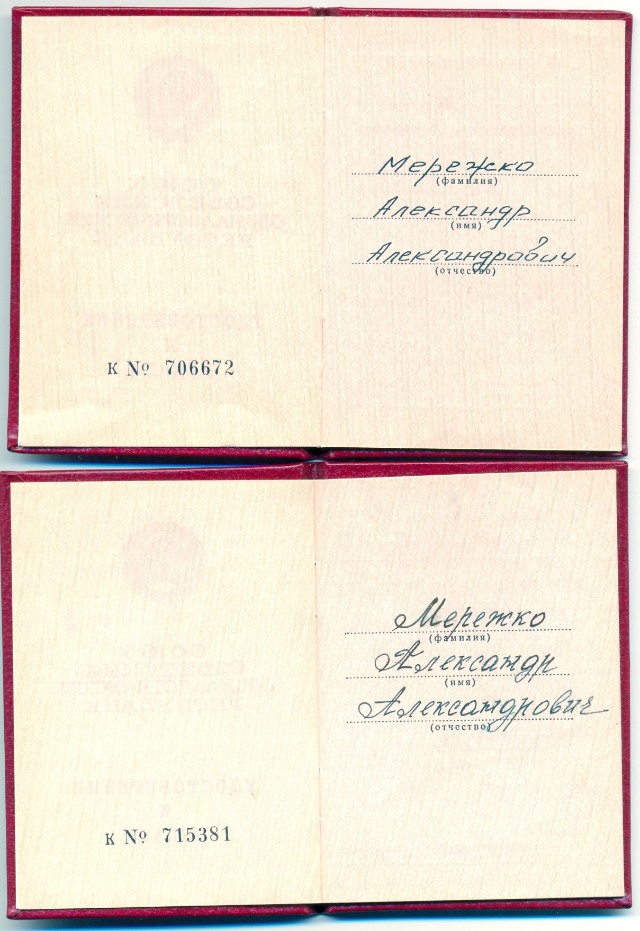 Мережко
(фамилия)
Александр
(имя)
Александрович
(отчество)
К № 706672
Мережко
(фамилия)
Александр
(имя)
Александрович
(отчество)
К № 715381